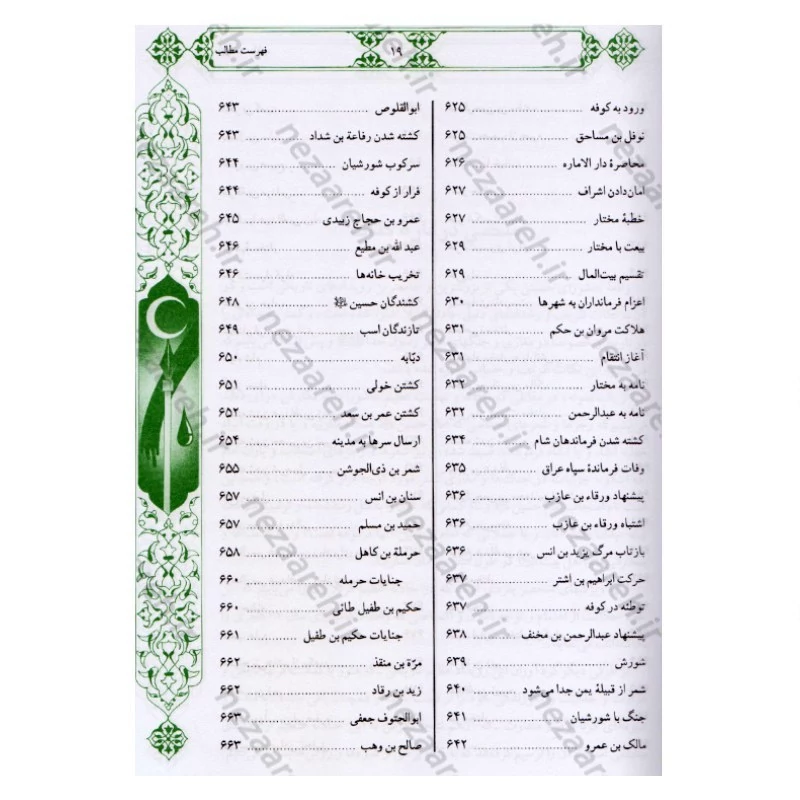 فهرست مطالب
۱۹
ورود به کوفه ........ ۶۲۵
نوفل بن مساحق ........ ۶۲۵
محاصرهٔ دار الاماره ........ ۶۲۶
امان‌دادن اشراف ........ ۶۲۷
خطبهٔ مختار ........ ۶۲۷
بیعت با مختار ........ ۶۲۹
تقسیم بیت‌المال ........ ۶۲۹
اعزام فرمانداران به شهرها ........ ۶۳۰
هلاکت مروان بن حکم ........ ۶۳۱
آغاز انتقام ........ ۶۳۱
نامه به مختار ........ ۶۳۲
نامه به عبدالرحمن ........ ۶۳۲
کشته شدن فرماندهان شام ........ ۶۳۴
وفات فرماندهٔ سپاه عراق ........ ۶۳۵
پیشنهاد ورقاء بن عازب ........ ۶۳۶
اشتباه ورقاء بن عازب ........ ۶۳۶
بازتاب مرگ یزید بن انس ........ ۶۳۶
حرکت ابراهیم بن اشتر ........ ۶۳۷
توطئه در کوفه ........ ۶۳۷
پیشنهاد عبدالرحمن بن مخنف ........ ۶۳۸
شورش ........ ۶۳۹
شمر از قبیلهٔ یمن جدا می‌شود ........ ۶۴۰
جنگ با شورشیان ........ ۶۴۱
مالک بن عمرو ........ ۶۴۲
ابوالقلوص ........ ۶۴۳
کشته شدن رفاعة بن شداد ........ ۶۴۳
سرکوب شورشیان ........ ۶۴۴
فرار از کوفه ........ ۶۴۴
عمرو بن حجاج زبیدی ........ ۶۴۵
عبد الله بن مطیع ........ ۶۴۶
تخریب خانه‌ها ........ ۶۴۶
کشندگان حسین ........ ۶۴۸
تازندگان اسب ........ ۶۴۹
دبّابه ........ ۶۵۰
کشتن خولی ........ ۶۵۱
کشتن عمر بن سعد ........ ۶۵۲
ارسال سرها به مدینه ........ ۶۵۴
شمر بن ذی‌الجوشن ........ ۶۵۵
سنان بن انس ........ ۶۵۷
حمید بن مسلم ........ ۶۵۷
حرملة بن کاهل ........ ۶۵۸
جنایات حرمله ........ ۶۶۰
حکیم بن طفیل طائی ........ ۶۶۰
جنایات حکیم بن طفیل ........ ۶۶۱
مرّة بن منقذ ........ ۶۶۲
زید بن رقاد ........ ۶۶۲
ابوالحتوف جعفی ........ ۶۶۳
صالح بن وهب ........ ۶۶۳
nezaareh.ir